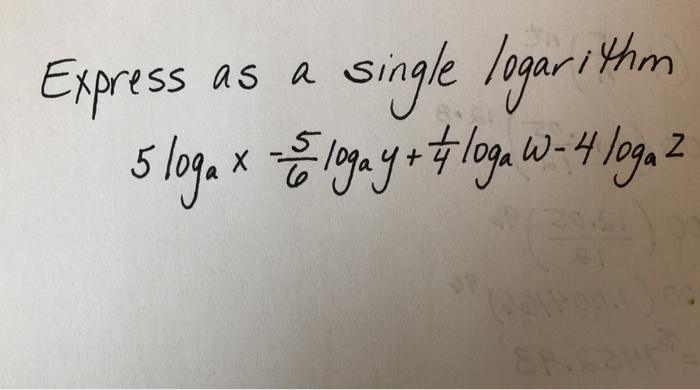 Express as a single logarithm
5 logₐ x - 5/6 logₐ y + 1/4 logₐ W - 4 logₐ Z